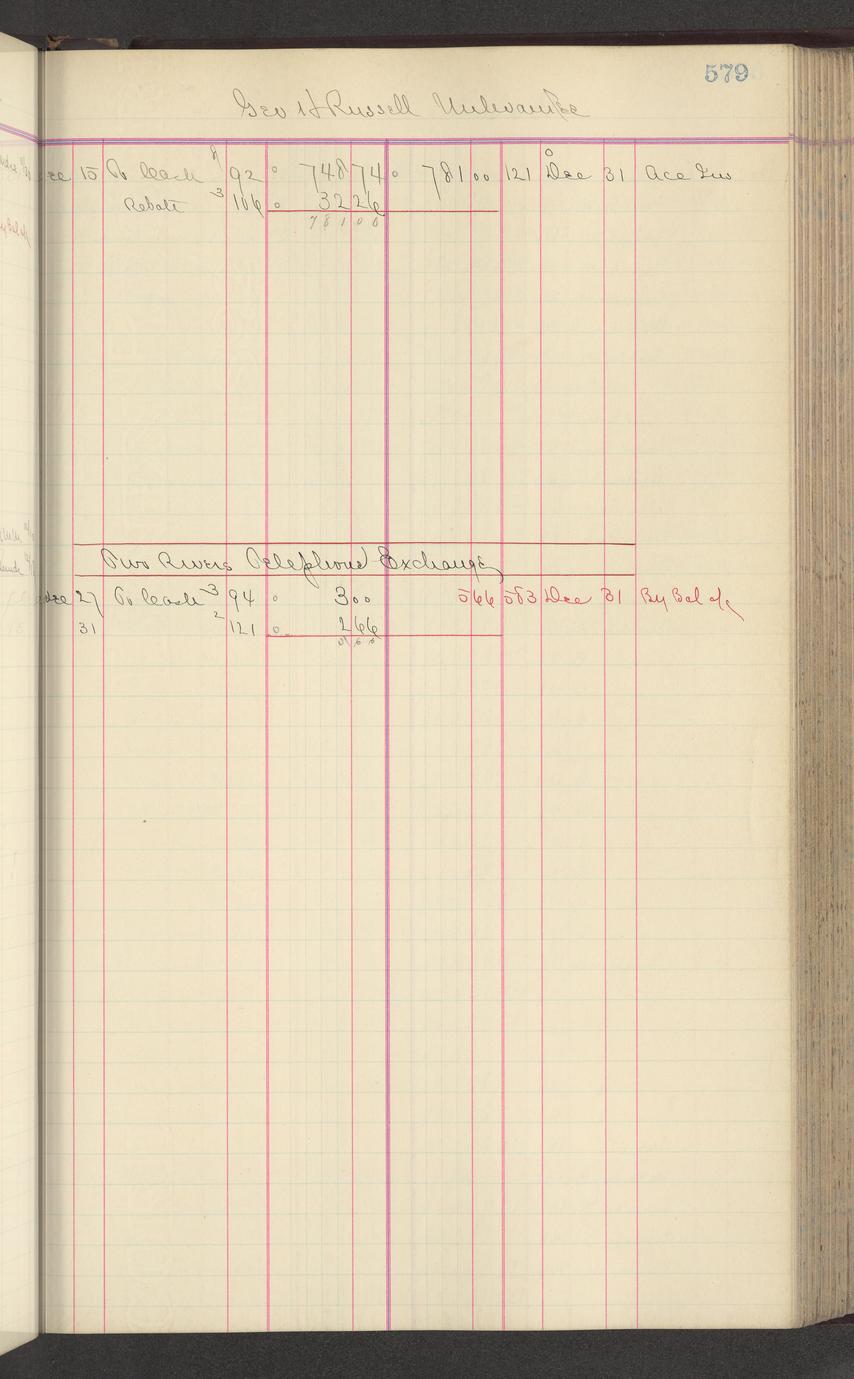 579
Geo H Russell Milwaukee
Dec 15 To Cash 8 92 748 74 781 00 121 Dec 31 Acc Inv
Rebate 3 106 32 26
781 00
Two Rivers Telephone Exchange
Dec 27 To Cash 3 94 3 00 5 66 583 Dec 31 By Bal a/c
31 2 121 2 66
5 66